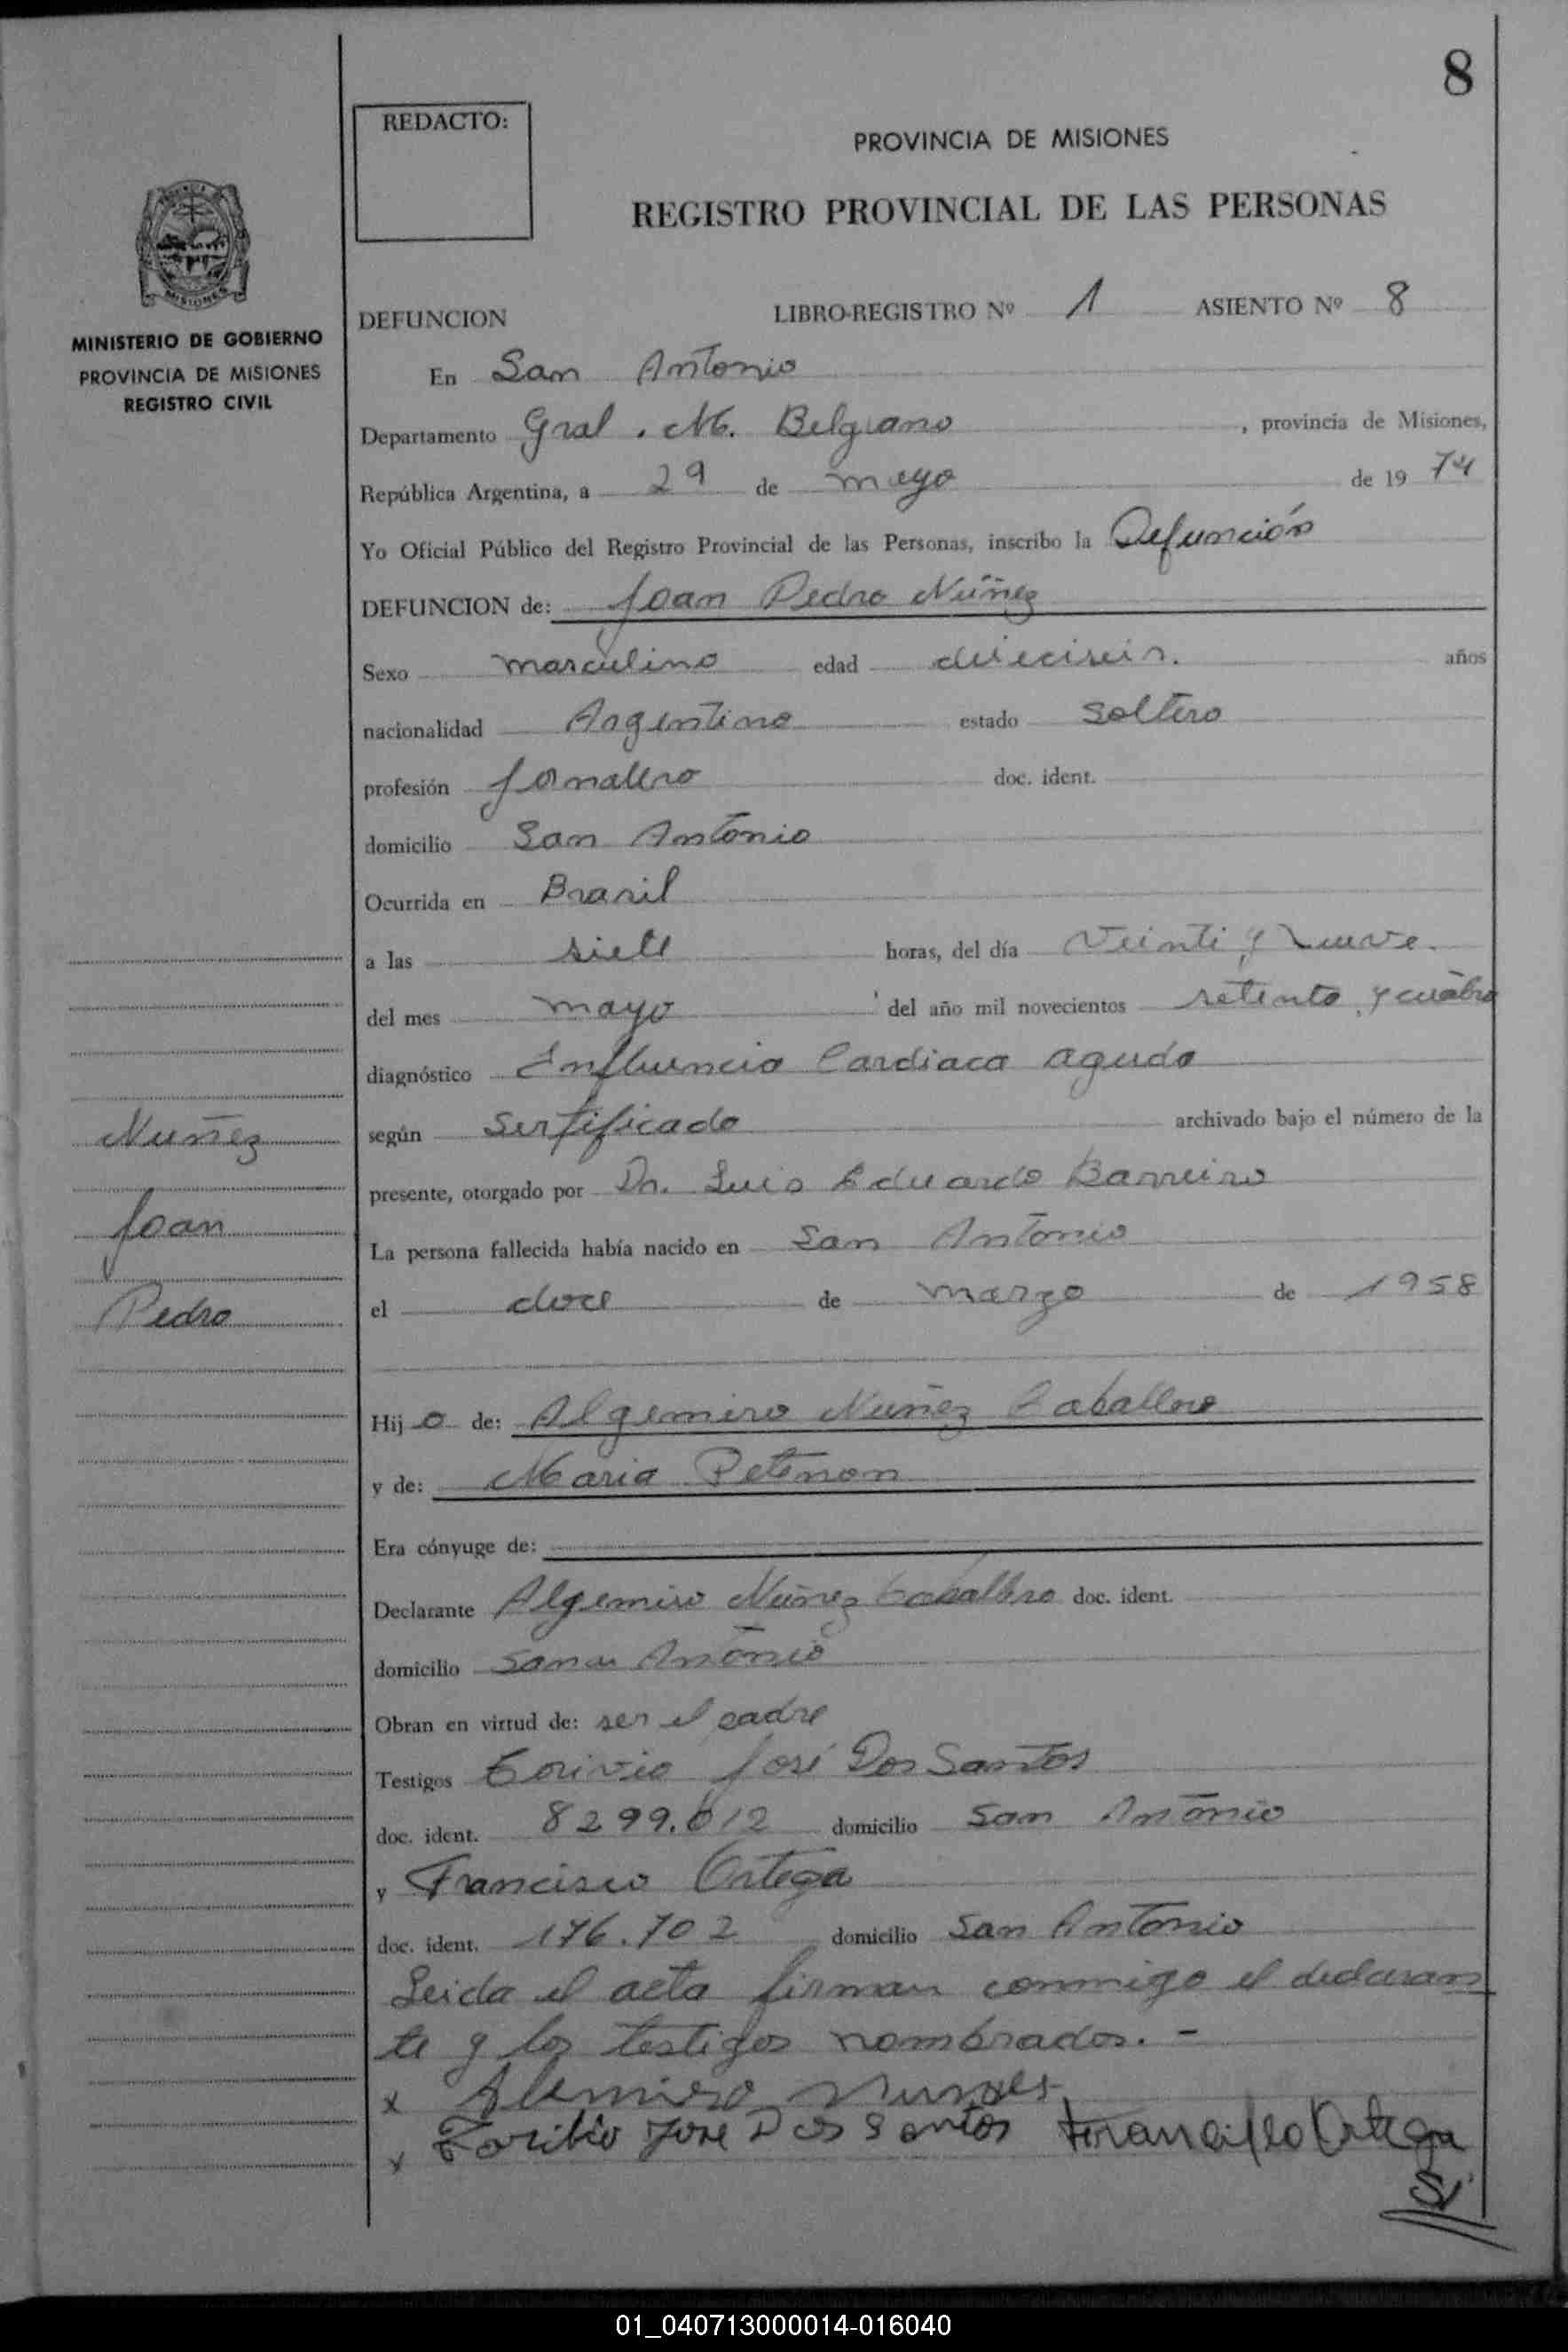 8
REDACTO:
PROVINCIA DE MISIONES
REGISTRO PROVINCIAL DE LAS PERSONAS
MISIONES
MINISTERIO DE GOBIERNO
PROVINCIA DE MISIONES
REGISTRO CIVIL
DEFUNCION LIBRO-REGISTRO Nº 1 ASIENTO Nº 8
En San Antonio
Departamento Gral. M. Belgrano, provincia de Misiones,
República Argentina, a 29 de mayo de 19 74
Yo Oficial Público del Registro Provincial de las Personas, inscribo la Defunción
DEFUNCION de: Joan Pedro Núñez
Sexo masculino edad dieciseis. años
nacionalidad Argentino estado soltero
profesión Jornallero doc. ident.
domicilio San Antonio
Ocurrida en Brasil
a las siete horas, del día Veinti y Nueve.
del mes mayo del año mil novecientos setenta y cuatro
diagnóstico Enfluencia Cardiaca aguda
según Sertificado archivado bajo el número de la
presente, otorgado por Dr. Luis Eduardo Barreiro
La persona fallecida había nacido en San Antonio
el doce de marzo de 1958
Nuñez
Joan
Pedro
Hijo de: Algemiro Nuñez Caballero
y de: Maria Peterson
Era cónyuge de:
Declarante Algemiro Núñez Caballero doc. ident.
domicilio San Antonio
Obran en virtud de: ser el padre
Testigos Torivio José Dos Santos
doc. ident. 8299.612 domicilio San Antonio
y Francisco Ortega
doc. ident. 176.702 domicilio San Antonio
Leida el acta firman conmigo el declaran
te y los testigos nombrados. -
x Alemiro Nunes
x Toribio Jose Dos Santos Francisco Ortega
01_040713000014-016040